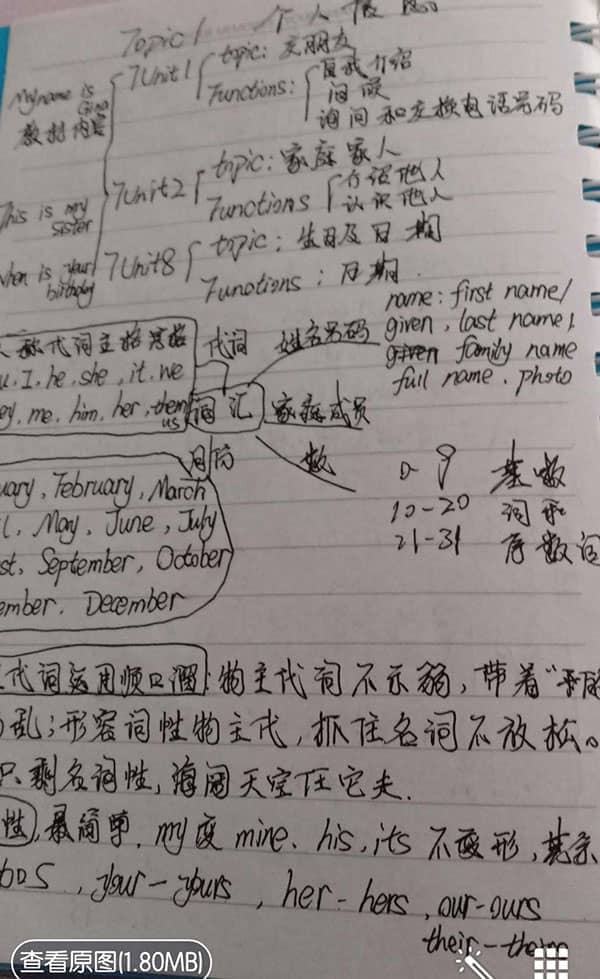 Topic 1 个人信息
7Unit1 topic: 交朋友
My name is Gina
Functions: 自我介绍
问候
询问和交换电话号码
教材内容
7Unit2 topic: 家庭家人
This is my sister
Functions 介绍他人
认识他人
7Unit8 topic: 生日及日期
When is your birthday
Functions: 日期.
name: first name/
given, last name,
family name
full name. photo
人称代词主格宾格 代词 姓名号码
u. I. he, she, it. we
ey, me, him, her, them us 词汇 家庭成员
月份 数 0-9 基数
uary, February, March 10-20 词和
l, May, June, July 21-31 序数词
st, September, October
ember. December
代词运用顺口溜: 物主代词不示弱, 带着"
乱; 形容词性物主代, 抓住名词不放松。
只剩名词性, 海阔天空任它
性, 最简单, my变mine. his, its 不变形, 其余
your-yours, her-hers, our-ours
their-theirs
查看原图(1.80MB)